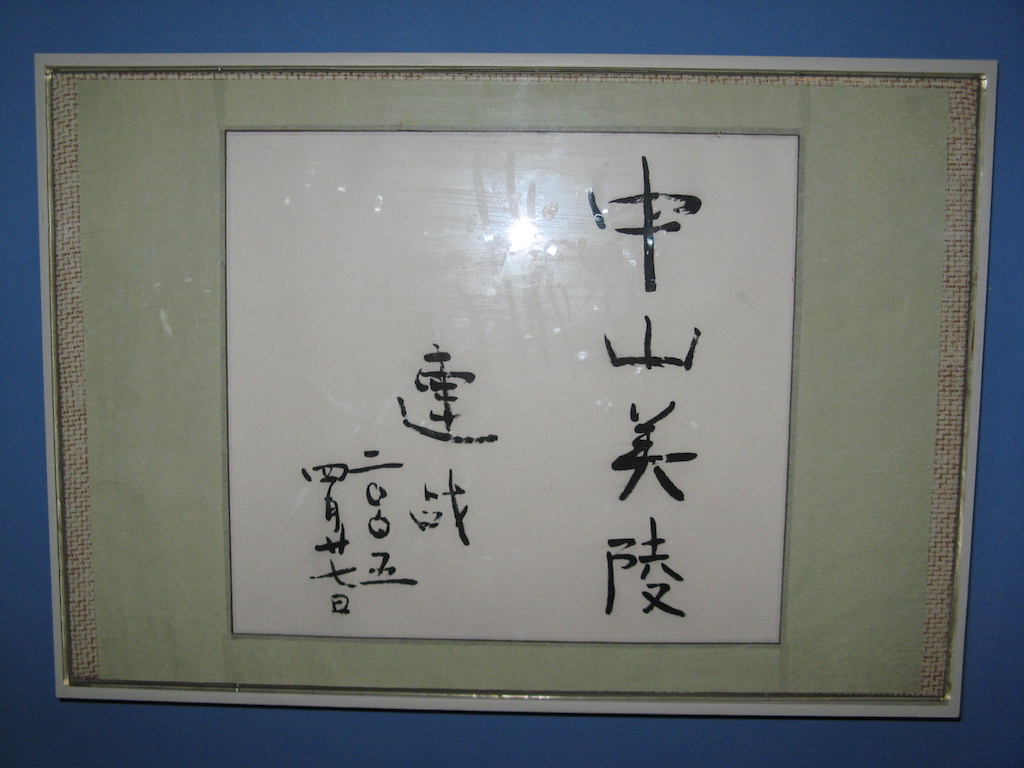 中山美陵
連战
二〇〇五
四月廿七日